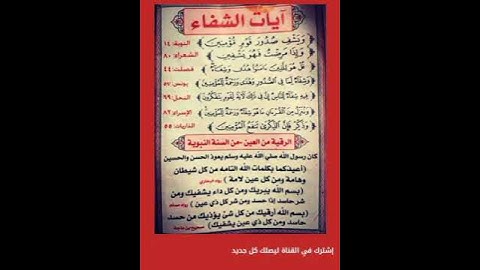 آيات الشفاء
وَيَشْفِ صُدُورَ قَوْمٍ مُّؤْمِنِينَ التوبة: ١٤
وَإِذَا مَرِضْتُ فَهُوَ يَشْفِينِ الشعراء: ٨٠
قُلْ هُوَ لِلَّذِينَ آمَنُوا هُدًى وَشِفَاءٌ فصلت: ٤٤
وَشِفَاءٌ لِّمَا فِي الصُّدُورِ وَهُدًى وَرَحْمَةٌ لِّلْمُؤْمِنِينَ يونس: ٥٧
فِيهِ شِفَاءٌ لِلنَّاسِ إِنَّ فِي ذَلِكَ لَآيَةً لِّقَوْمٍ يَتَفَكَّرُونَ النحل: ٦٩
وَنُنَزِّلُ مِنَ الْقُرْآنِ مَا هُوَ شِفَاءٌ وَرَحْمَةٌ لِّلْمُؤْمِنِينَ الإسراء: ٨٢
وَذَكِّرْ فَإِنَّ الذِّكْرَى تَنفَعُ الْمُؤْمِنِينَ الذاريات: ٥٥
الرقية من العين -من السنة النبوية
كان رسول الله صلي الله عليه وسلم يعوذ الحسن والحسين
(أعيذكما بكلمات الله التامه من كل شيطان
وهامة ومن كل عين لامة) رواه البخاري
(بسم الله يبريك ومن كل داء يشفيك ومن
شر حاسد إذا حسد ومن شر كل ذي عين) رواه مسلم
(بسم الله أرقيك من كل شئ يؤذيك من حسد
حاسد ومن كل ذي عين يشفيك) صحيح بن ماجة
إشترك في القناة ليصلك كل جديد